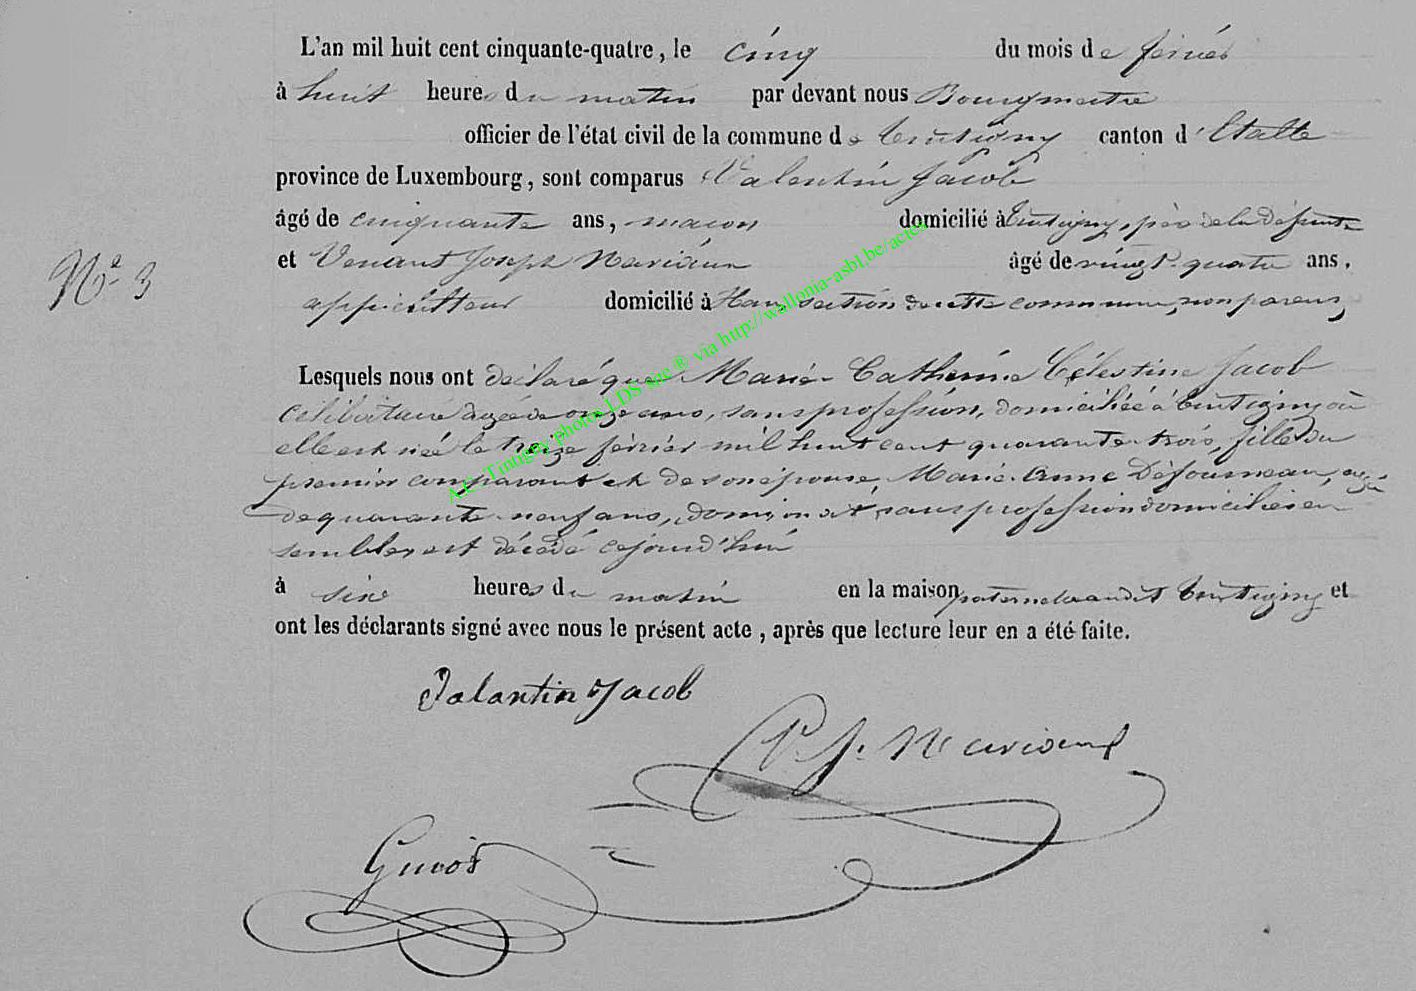 L'an mil huit cent cinquante-quatre, le cinq du mois de février
à huit heures du matin par devant nous Bourgmestre
officier de l'état civil de la commune de Tintigny canton d'Etalle
province de Luxembourg, sont comparus Valentin Jacob
âgé de cinquante ans, macon domicilié à Tintigny, père de la défunte
N° 3
et Venant Joseph âgé de vingt-quatre ans,
domicilié à Han, section de cette commune, non parens,
Lesquels nous ont déclaré que Marie Catherine Célestine Jacob
célibataire agée de onze ans, sans profession, domiciliée à Tintigny où
elle est née le treize février mil huit cent quarante-trois, fille du
premier comparant et de son épouse, Marie Anne agée
de quarante-neuf ans, sans profession domiciliés en
semble, est décédé cejourd'hui
à six heures du matin en la maison paternelle audit Tintigny et
ont les déclarants signé avec nous le présent acte, après que lecture leur en a été faite.
Valantin Jacob
J.
A.C. Tintigny photos LDS site ® via http://wallonia-asbl.be/actes